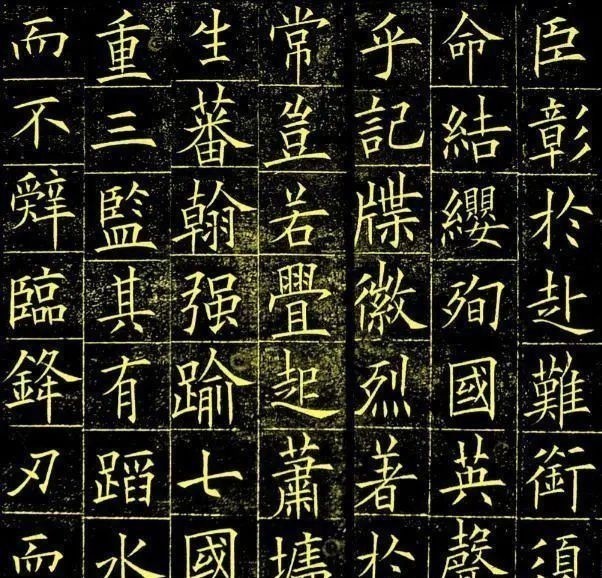 臣彰於赴難銜須
命結纓殉國英聲
乎記牒徽烈著於
常豈若疊起蕭墻
生蕃翰强踰七國
重三監其有蹈水
而不辭臨鋒刃而